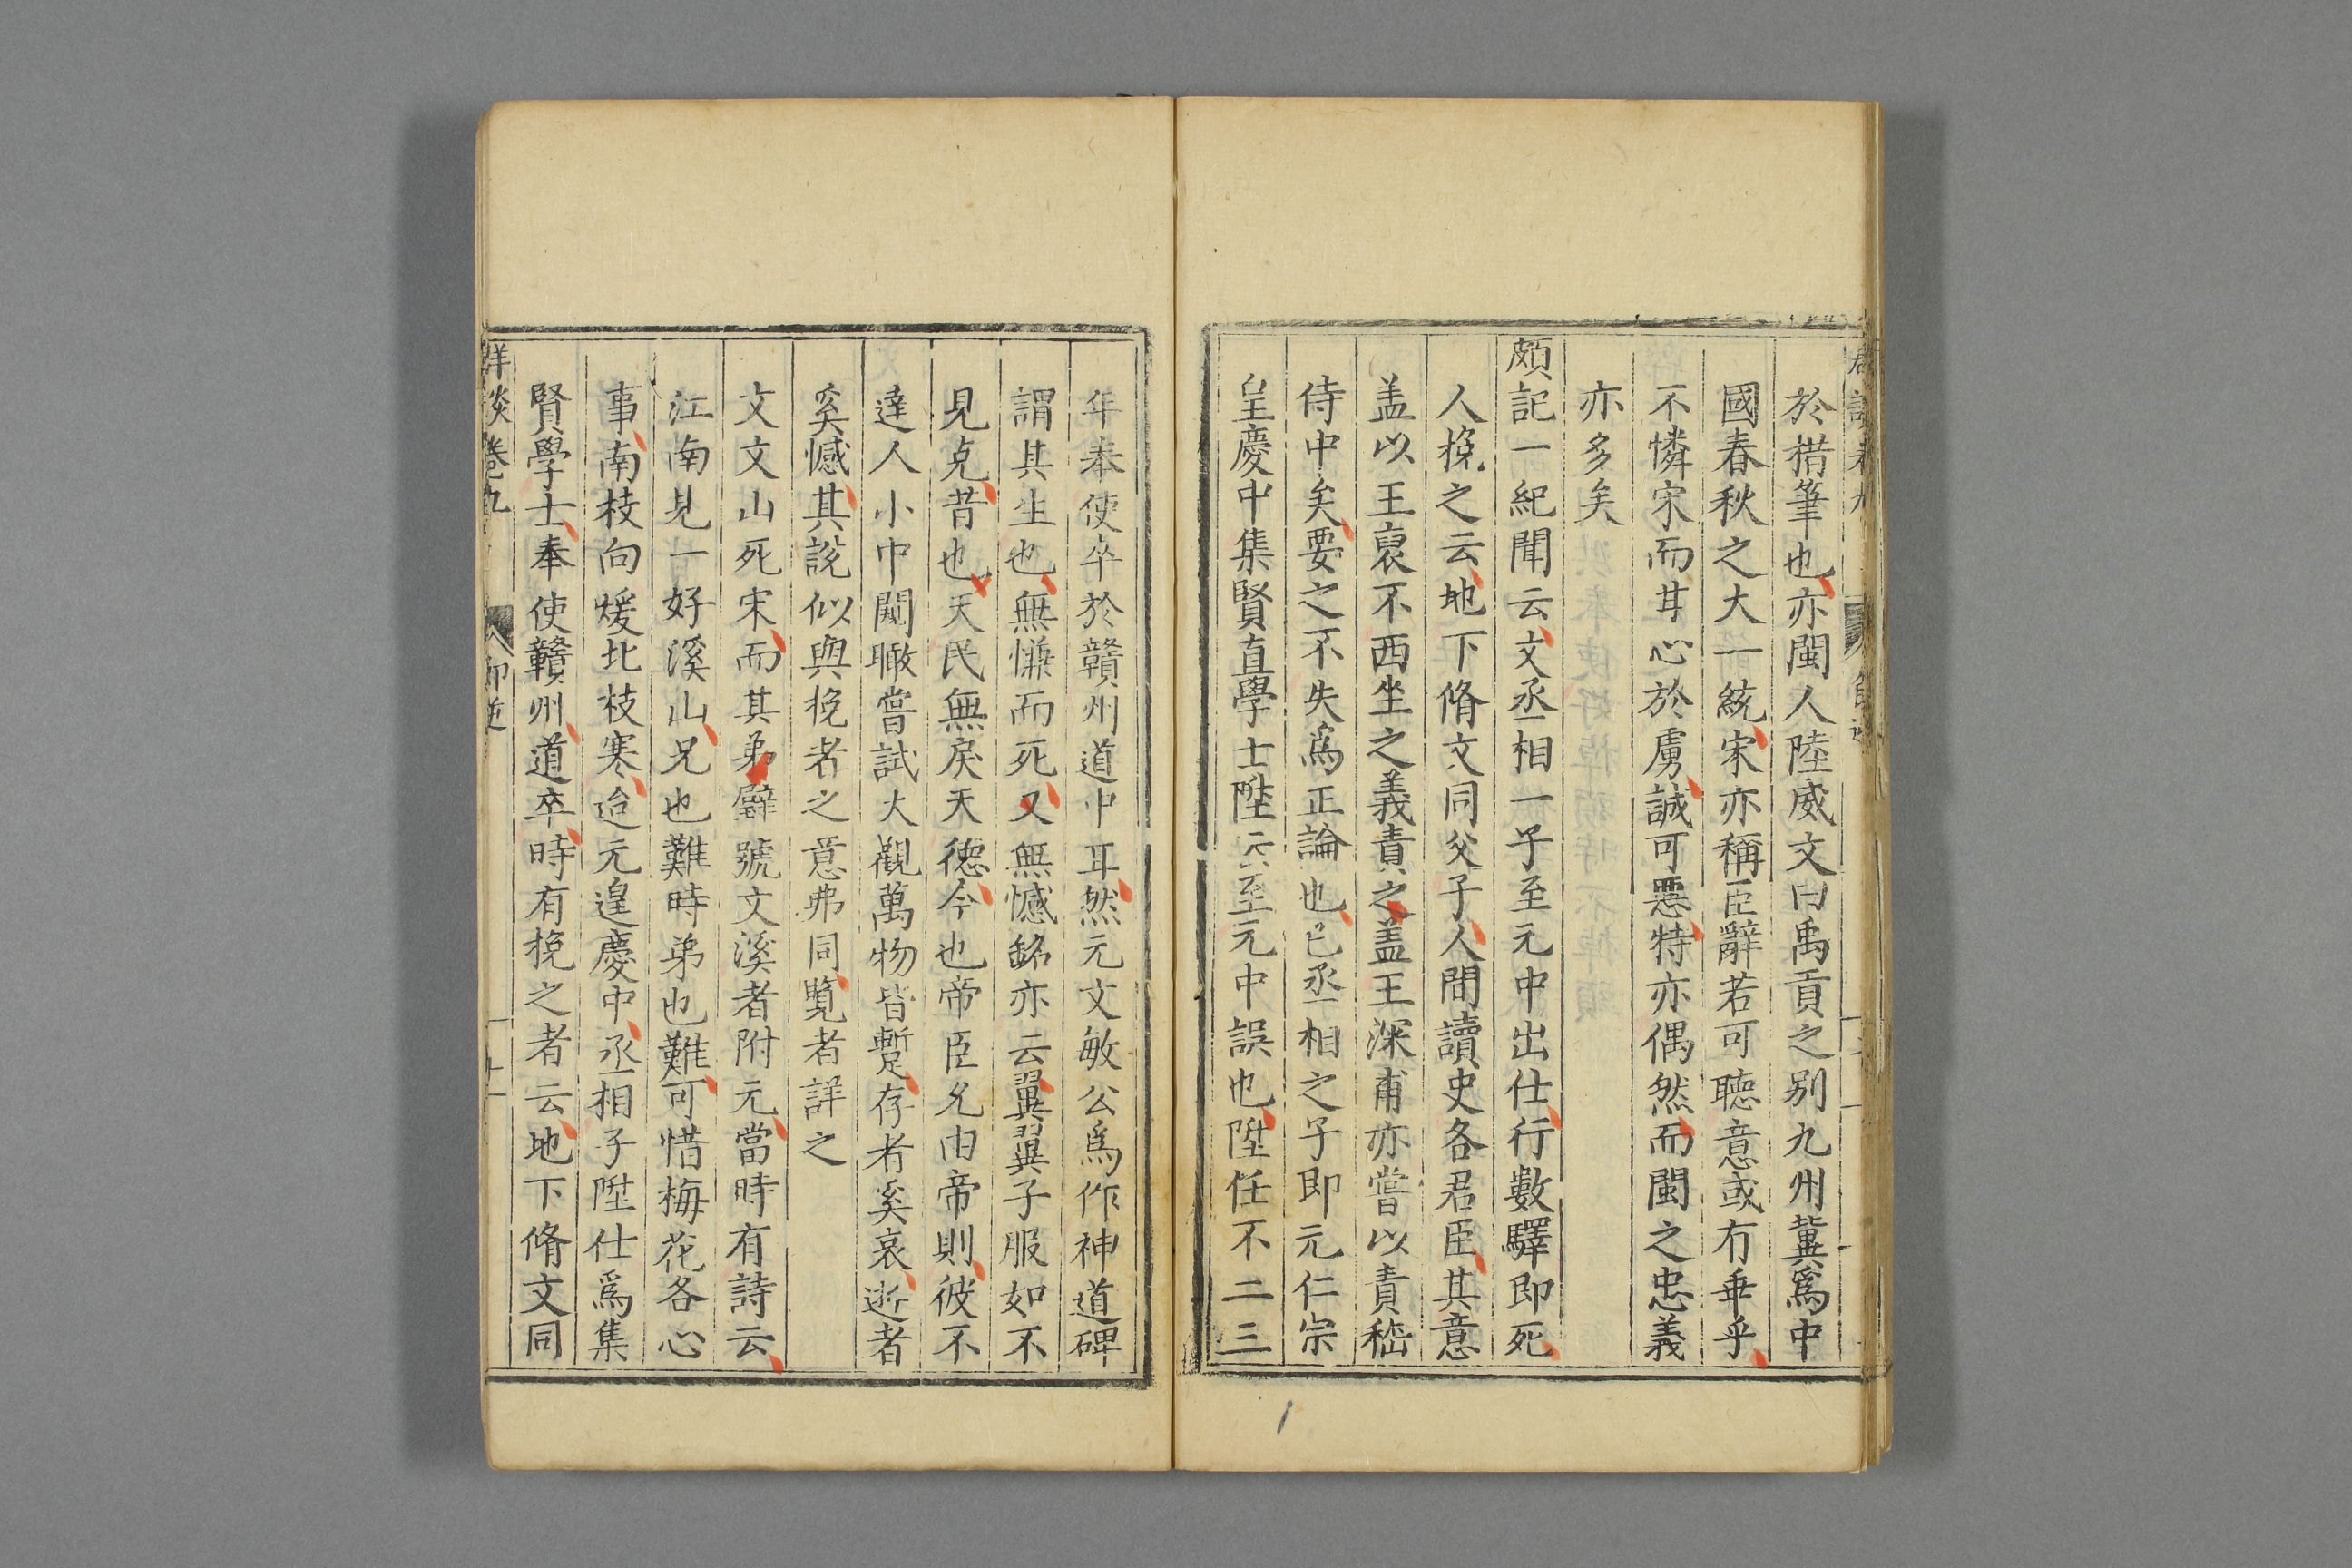 於措筆也亦閩人陸威文曰禹貢之别九州冀爲中
國春秋之大一統宋亦稱臣辭若可聽意或冇垂乎
不憐宋而甘心於虜誠可惡特亦偶然而閩之忠義
亦多矣
頗記一紀聞云文丞相一子至元中出仕行數驛即死
人挽之云地下脩文同父子人間讀史各君臣其意
盖以王裒不西坐之義責之盖王深甫亦嘗以責嵇
侍中矣要之不失爲正論也已丞相之子即元仁宗
皇慶中集賢直學士陞云至元中誤也陞任不二三
年奉使卒於贛州道中耳然元文敏公爲作神道碑
謂其生也無慊而死又無憾銘亦云翼翼子服如不
見克昔也天民無戾天天德今也帝臣允由帝則彼不
達人小中闚瞰嘗試大觀萬物皆蹔存者奚哀逝者
奚憾其説似與挽者之意弗同覽者詳之
文文山死宋而其弟璧號文溪者附元當時有詩云
江南見一好溪山兄也難時弟也難可惜梅花各心
事南枝向煖北枝寒迨元皇慶中丞相子陞仕爲集
賢學士奉使贛州道卒時有挽之者云地下脩文同
談卷九